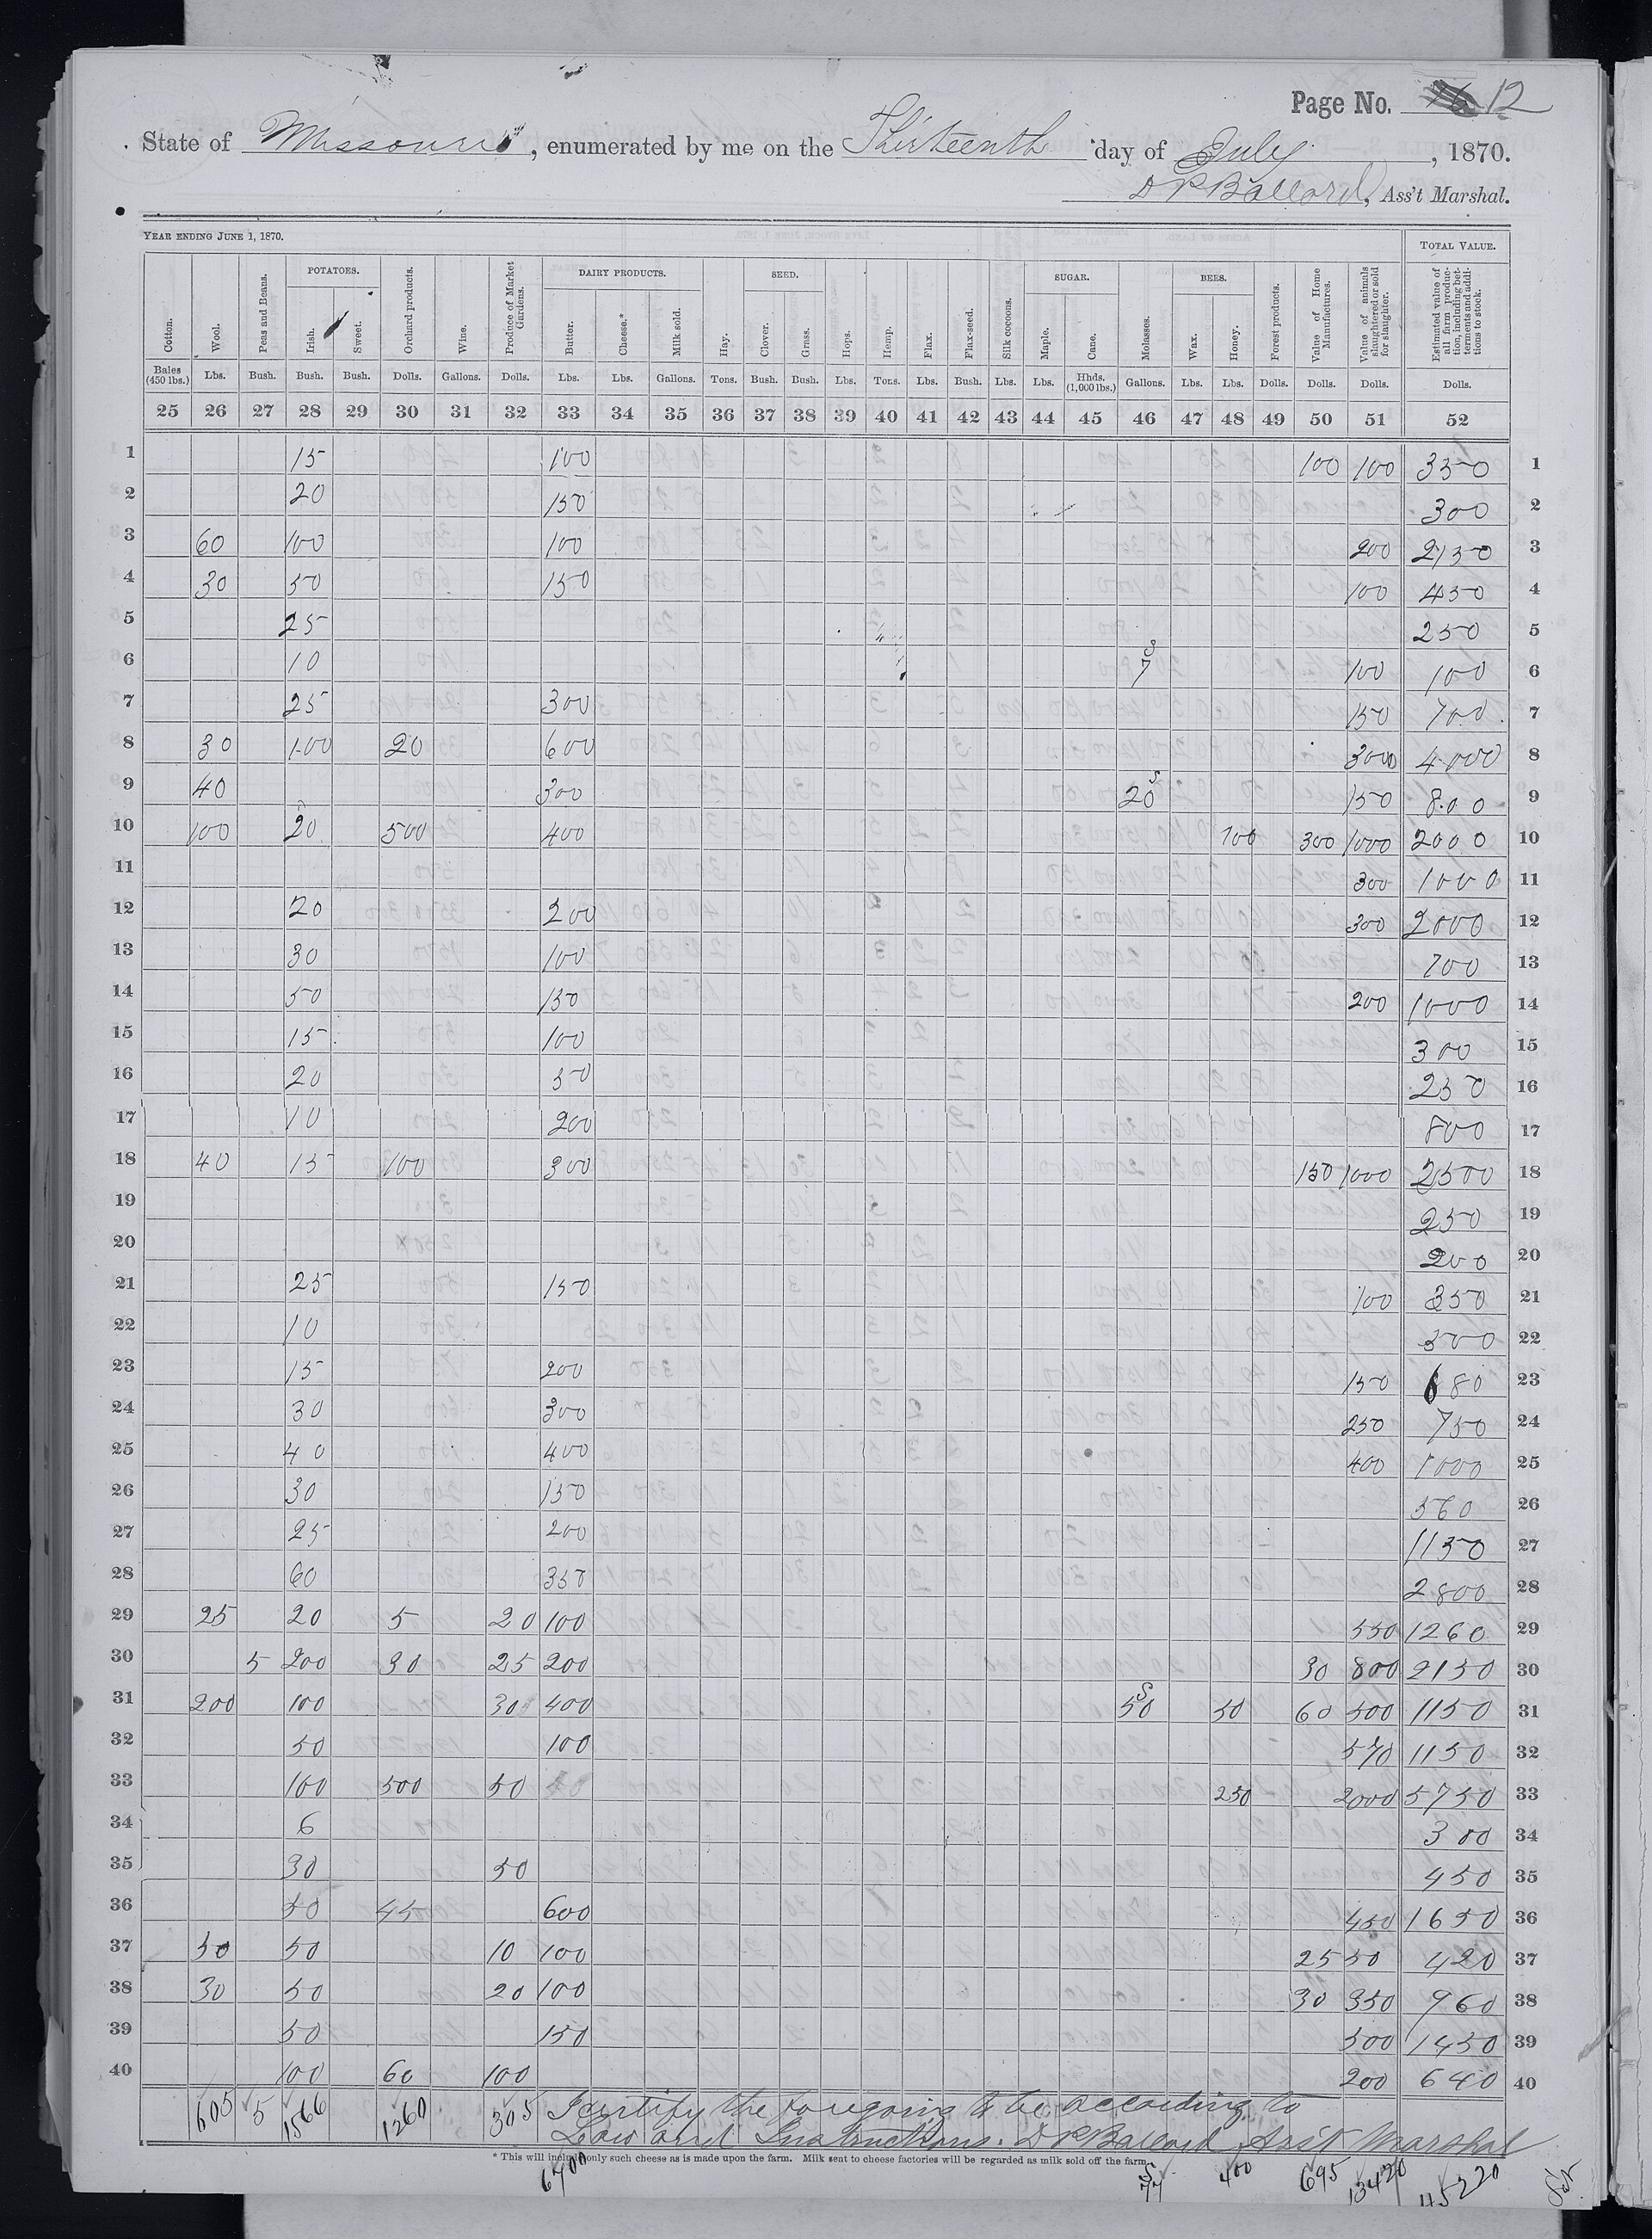 Page No. 12
State of Missouri, enumerated by me on the Thirteenth day of July, 1870.
D P Ballard, Ass't Marshal.
YEAR ENDING JUNE 1, 1870. TOTAL VALUE.
POTATOES. DAIRY PRODUCTS. SEED. SUGAR. BEES.
Cotton. Wool. Peas and Beans. Irish. Sweet. Orchard products. Wine. Produce of Market Gardens. Butter. Cheese.* Milk sold. Hay. Clover. Grass. Hops. Hemp. Flax. Flax-seed. Silk cocoons. Maple. Cane. Molasses. Wax. Honey. Forest products. Value of Home Manufactures. Value of animals slaughtered or sold for slaughter. Estimated value of all farm production, including betterments and additions to stock.
Bales (450 lbs.) Lbs. Bush. Bush. Bush. Dolls. Gallons. Dolls. Lbs. Lbs. Gallons. Tons. Bush. Bush. Lbs. Tons. Lbs. Bush. Lbs. Lbs. Hhds. (1,000 lbs.) Gallons. Lbs. Lbs. Dolls. Dolls. Dolls. Dolls.
25 26 27 28 29 30 31 32 33 34 35 36 37 38 39 40 41 42 43 44 45 46 47 48 49 50 51 52
1 15 100 100 100 350 1
2 20 150 300 2
3 60 100 100 200 2150 3
4 30 50 150 100 450 4
5 25 250 5
6 10 S 7 100 100 6
7 25 300 150 700 7
8 30 100 20 600 3000 4000 8
9 40 300 S 20 150 800 9
10 100 20 500 400 100 300 1000 2000 10
11 300 1000 11
12 20 200 300 2000 12
13 30 100 700 13
14 50 150 200 1000 14
15 15 100 300 15
16 20 50 250 16
17 10 200 800 17
18 40 15 100 300 150 1000 2500 18
19 250 19
20 200 20
21 25 150 100 350 21
22 10 300 22
23 15 200 150 680 23
24 30 300 250 750 24
25 40 400 400 1000 25
26 30 150 560 26
27 25 200 1150 27
28 60 350 2800 28
29 25 20 5 20 100 550 1260 29
30 5 200 30 25 200 30 800 2150 30
31 200 100 30 400 S 50 50 60 500 1150 31
32 50 100 570 1150 32
33 100 500 50 250 2000 5750 33
34 6 300 34
35 30 50 450 35
36 50 45 600 450 1650 36
37 50 50 10 100 25 50 420 37
38 30 50 20 100 30 350 960 38
39 50 150 500 1450 39
40 100 60 100 200 640 40
605 5 1566 1260 305 I certify the foregoing to be according to
Law and Instructions. D P Ballard Ass't Marshal
* This will include only such cheese as is made upon the farm. Milk sent to cheese factories will be regarded as milk sold off the farm.
6700 S 77 400 695 13420 45220